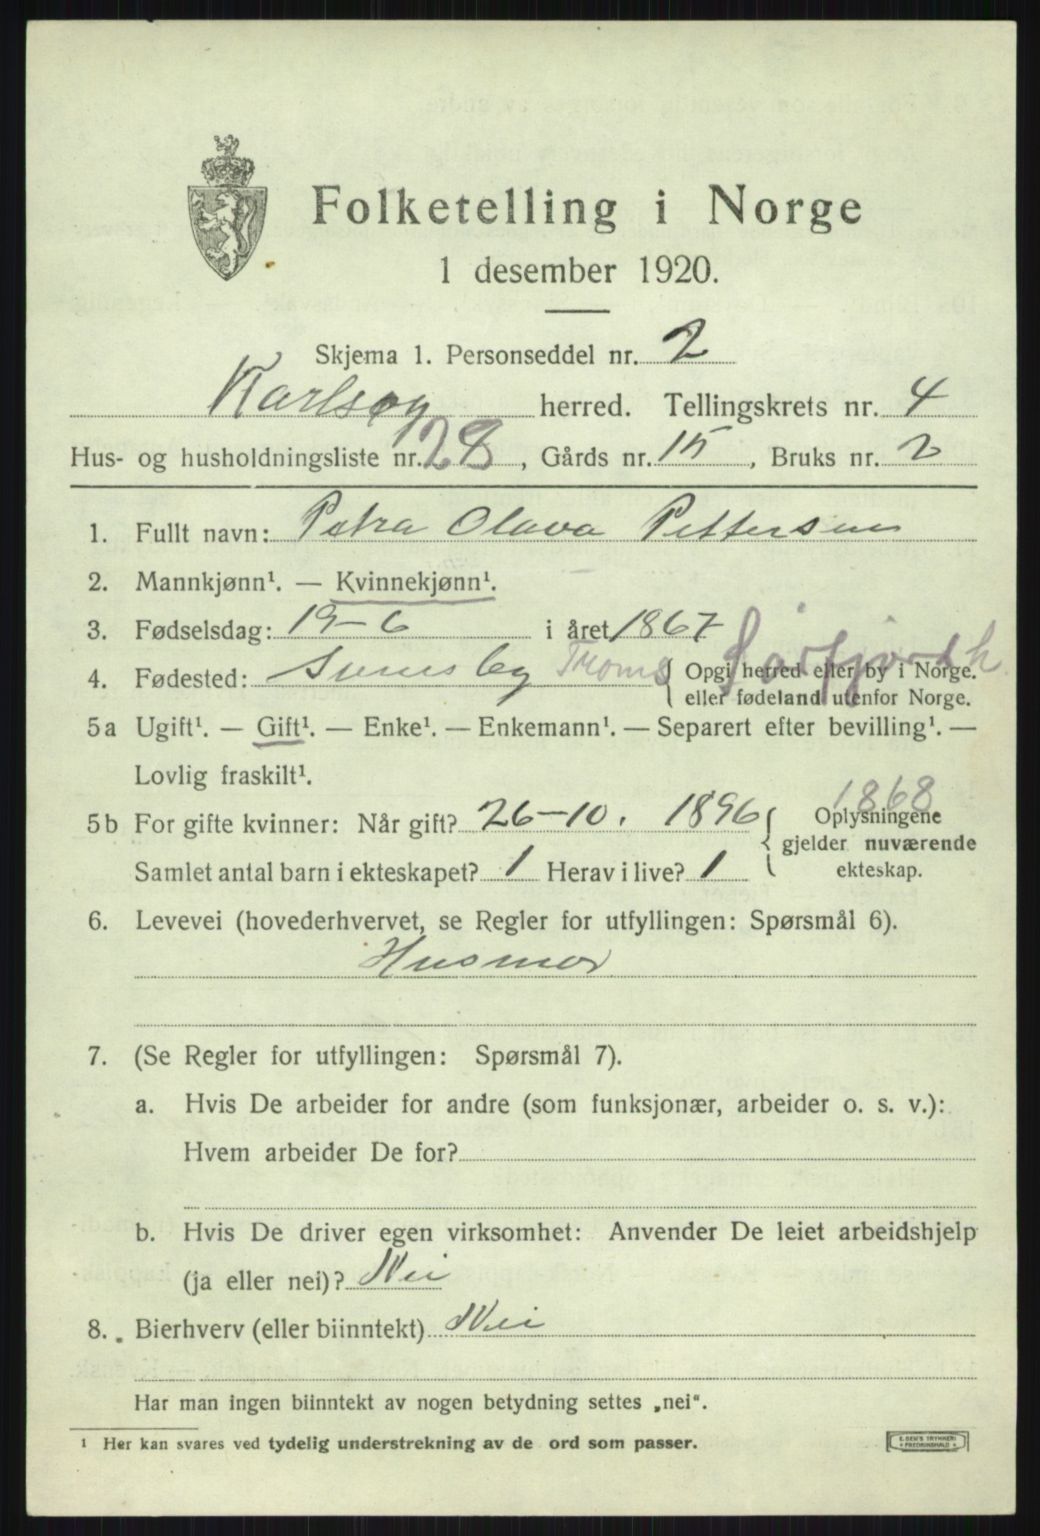 Folketelling i Norge
1 desember 1920.
Skjema 1. Personseddel nr. 2
Karlsøy herred. Tellingskrets nr. 4
Hus- og husholdningsliste nr. 28, Gårds nr. 15, Bruks nr. 2
1. Fullt navn: Petra Olava Pettersen
2. Mannkjønn¹. — Kvinnekjønn¹.
3. Fødselsdag: 19-6 i året 1867
4. Fødested: Troms Sørfjord h. { Opgi herred eller by i Norge.
eller fødeland utenfor Norge.
5a Ugift¹. — Gift¹. — Enke¹. — Enkemann¹. — Separert efter bevilling¹. —
Lovlig fraskilt¹.
1868
5b For gifte kvinner: Når gift? 26-10. 1896 { Oplysningene
gjelder nuværende
Samlet antal barn i ekteskapet? 1 Herav i live? 1 ekteskap.
6. Levevei (hovederhvervet, se Regler for utfyllingen: Spørsmål 6).
Husmor
7. (Se Regler for utfyllingen: Spørsmål 7).
a. Hvis De arbeider for andre (som funksjonær, arbeider o. s. v.):
Hvem arbeider De for?
b. Hvis De driver egen virksomhet: Anvender De leiet arbeidshjelp
(ja eller nei)? Nei
8. Bierhverv (eller biinntekt) Nei
Har man ingen biinntekt av nogen betydning settes „nei".
¹ Her kan svares ved tydelig understrekning av de ord som passer.
E. SEM'S TRYKKERI
FREDRIKSHALD